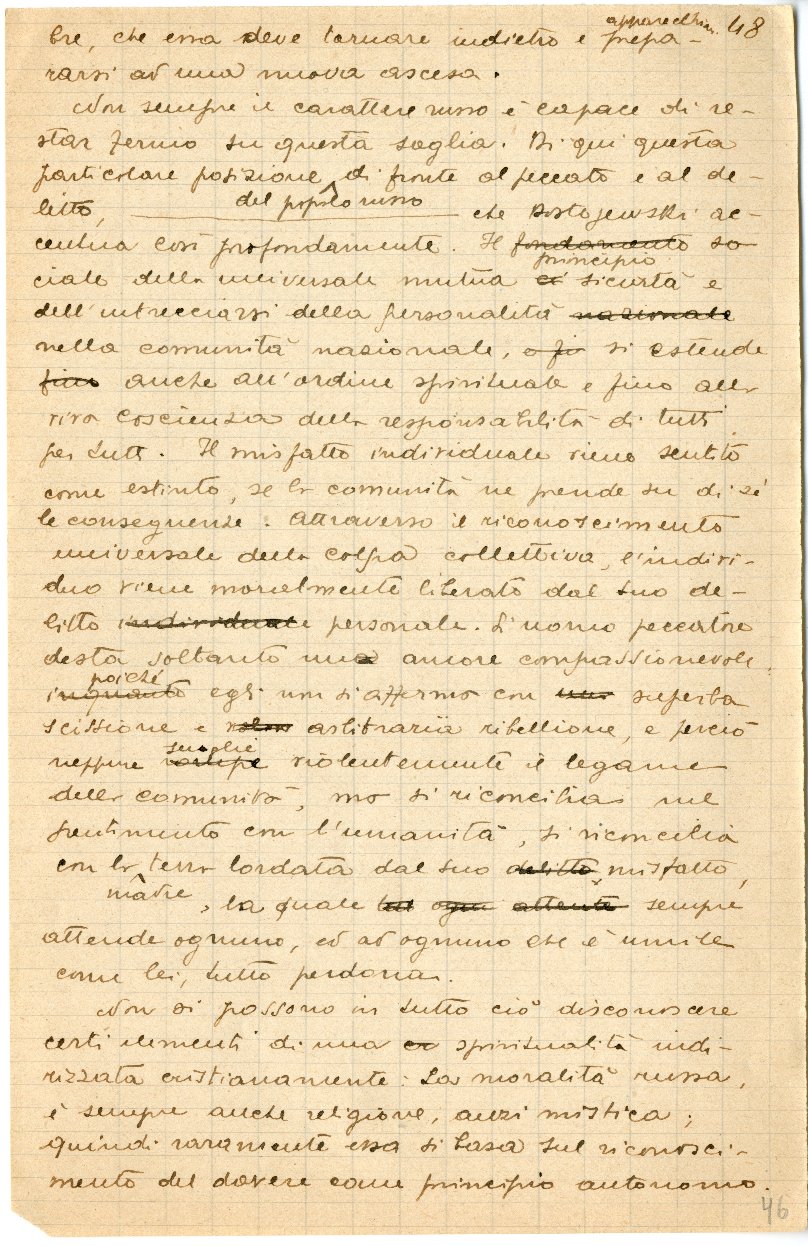 apparecchiar. 48
bre, che essa deve tornare indietro e prepa-
rarsi ad una nuova ascesa.
Non sempre il carattere russo è capace di re-
star fermo su questa soglia. Di qui questa
particolare posizione di fronte al peccato e al de-
del popolo russo
litto, che Dostojewski ac-
centua così profondamente. Il fondamento so-
principio
ciale della universale mutua sicurtà e
dell'intrecciarsi della personalità nazionale
nella comunità nazionale, si estende
fino anche all'ordine spirituale e fino alla
viva coscienza della responsabilità di tutti
per tutti. Il misfatto individuale viene sentito
come estinto, se la comunità ne prende su di sé
le conseguenze. Attraverso il riconoscimento
universale della colpa collettiva, l'indivi-
duo viene moralmente liberato dal suo de-
litto individuale personale. L'uomo peccatore
desta soltanto una amore compassionevole,
poiché
inquanto egli non si afferma con una superba
scissione e arbitraria ribellione, e perciò
scioglie
neppure violentemente il legame
della comunità, ma si riconcilia nel
pentimento con l'umanità, si riconcilia
con la terra lordata dal suo delitto misfatto,
madre
, la quale ogni attente sempre
attende ognuno, ed ad ognuno che è umile
come lei, tutto perdona.
Non si possono in tutto ciò disconoscere
certi elementi di una spiritualità indi-
rizzata cristianamente: La moralità russa,
è sempre anche religione, anzi mistica;
quindi raramente essa si basa sul riconosci-
mento del dovere come principio autonomo.
46